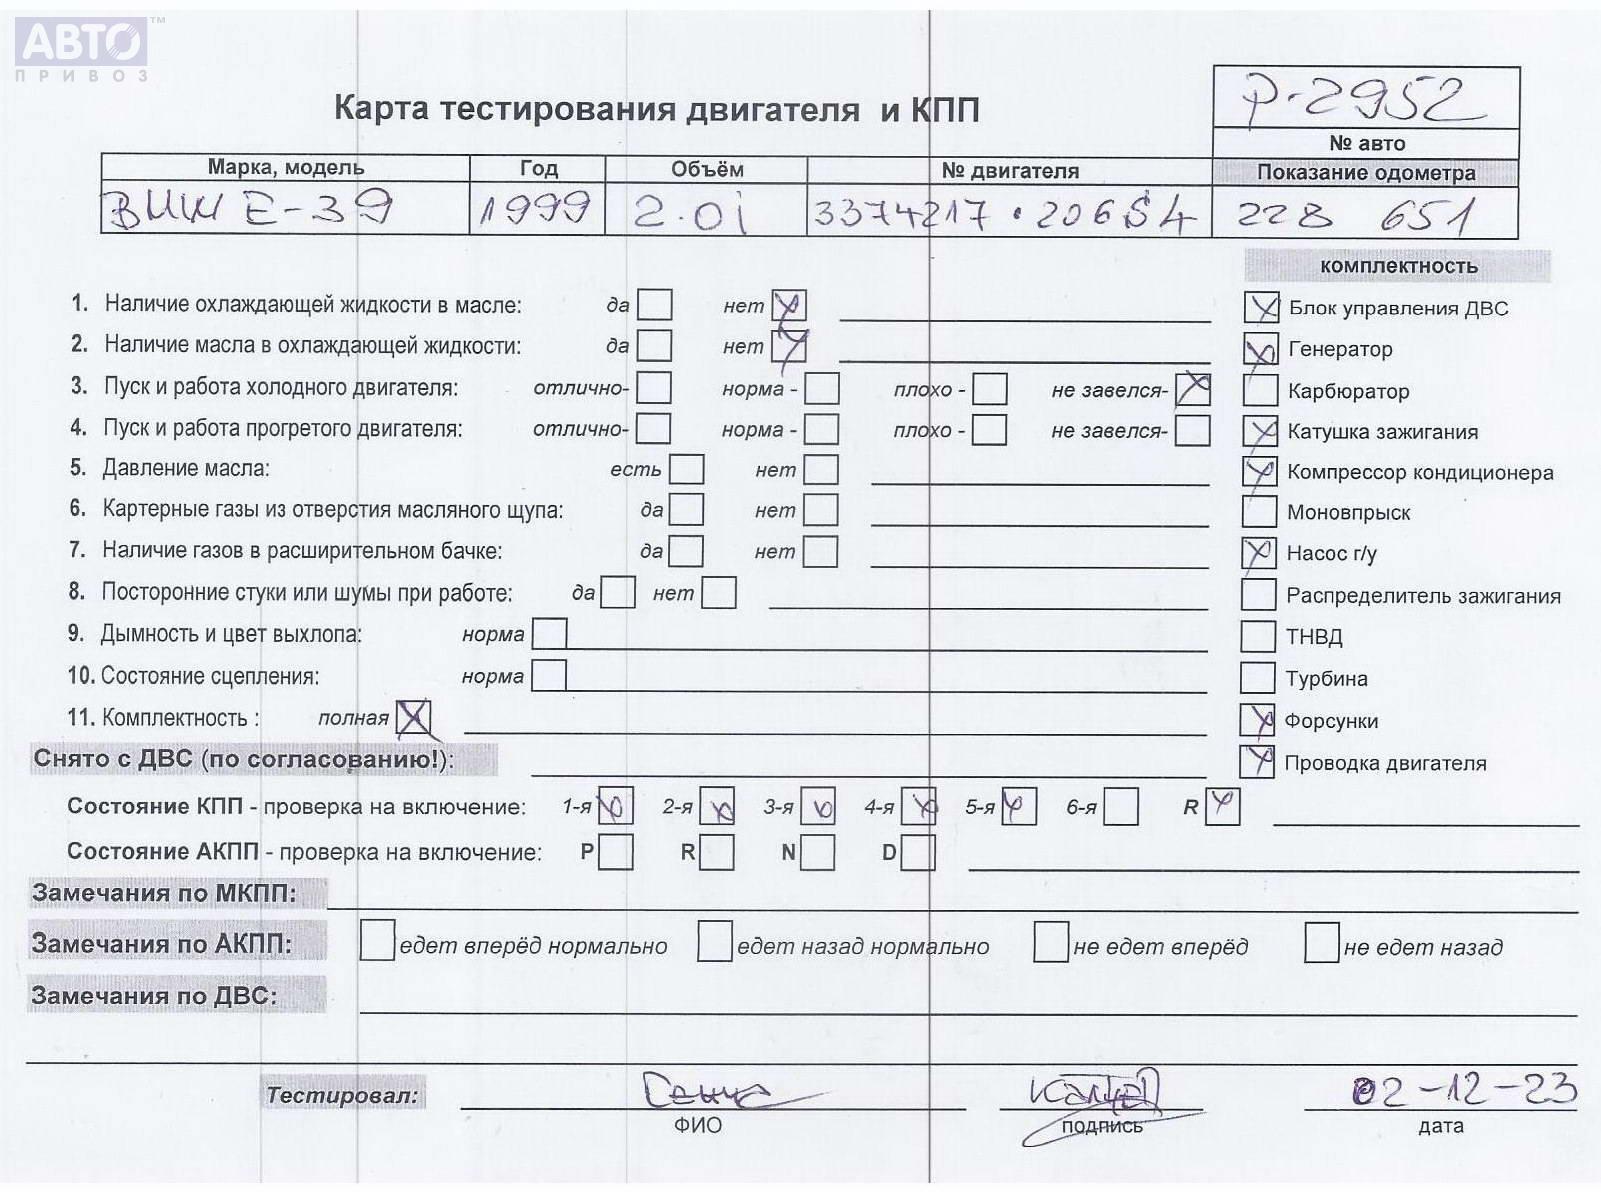 АВТО™
ПРИВОЗ
P-2952
Карта тестирования двигателя и КПП
№ авто
Марка, модель Год Объём № двигателя Показание одометра
BMW E-39 1999 2.0i 3374217 • 206S4 228 651
комплектность
1. Наличие охлаждающей жидкости в масле: да нет X X Блок управления ДВС
2. Наличие масла в охлаждающей жидкости: да нет X X Генератор
3. Пуск и работа холодного двигателя: отлично- норма - плохо - не завелся- X Карбюратор
4. Пуск и работа прогретого двигателя: отлично- норма - плохо - не завелся- X Катушка зажигания
5. Давление масла: есть нет X Компрессор кондиционера
6. Картерные газы из отверстия масляного щупа: да нет Моновпрыск
7. Наличие газов в расширительном бачке: да нет X Насос г/у
8. Посторонние стуки или шумы при работе: да нет Распределитель зажигания
9. Дымность и цвет выхлопа: норма ТНВД
10. Состояние сцепления: норма Турбина
11. Комплектность : полная X X Форсунки
Снято с ДВС (по согласованию!): X Проводка двигателя
Состояние КПП - проверка на включение: 1-я X 2-я X 3-я X 4-я X 5-я X 6-я R X
Состояние АКПП - проверка на включение: P R N D
Замечания по МКПП:
Замечания по АКПП: едет вперёд нормально едет назад нормально не едет вперёд не едет назад
Замечания по ДВС:
Тестировал: 02-12-23
ФИО подпись дата